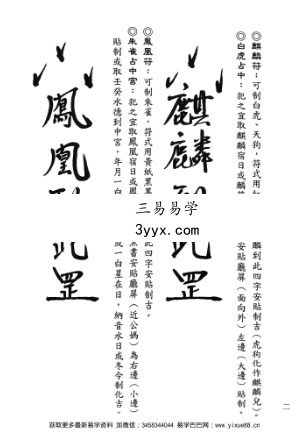 ◎麒麟符：可制白虎、天狗，符式用
◎白虎占中：犯之宜取麒麟宿日或
麒麟到
此罡
麟到此四字安貼制吉（虎狗化作麒麟兒）。
安貼廳屏（面向外）左邊（大邊）貼制。
◎鳳凰符：可制朱雀，符式用黃紙黑
◎朱雀占中宮：犯之宜取鳳凰宿日或
貼制或取壬癸水德到中宮，年月一白
鳳凰到
此罡
此四字安貼制吉。
書安貼廳屏（近公媽）為右邊（小邊）
或一白星在日，納音水日或冬令制化吉。
三易易学
3yyx.com
二
获取更多最新易学资料 加微信：3458344044 易学巴巴网：www.yixue88.cn